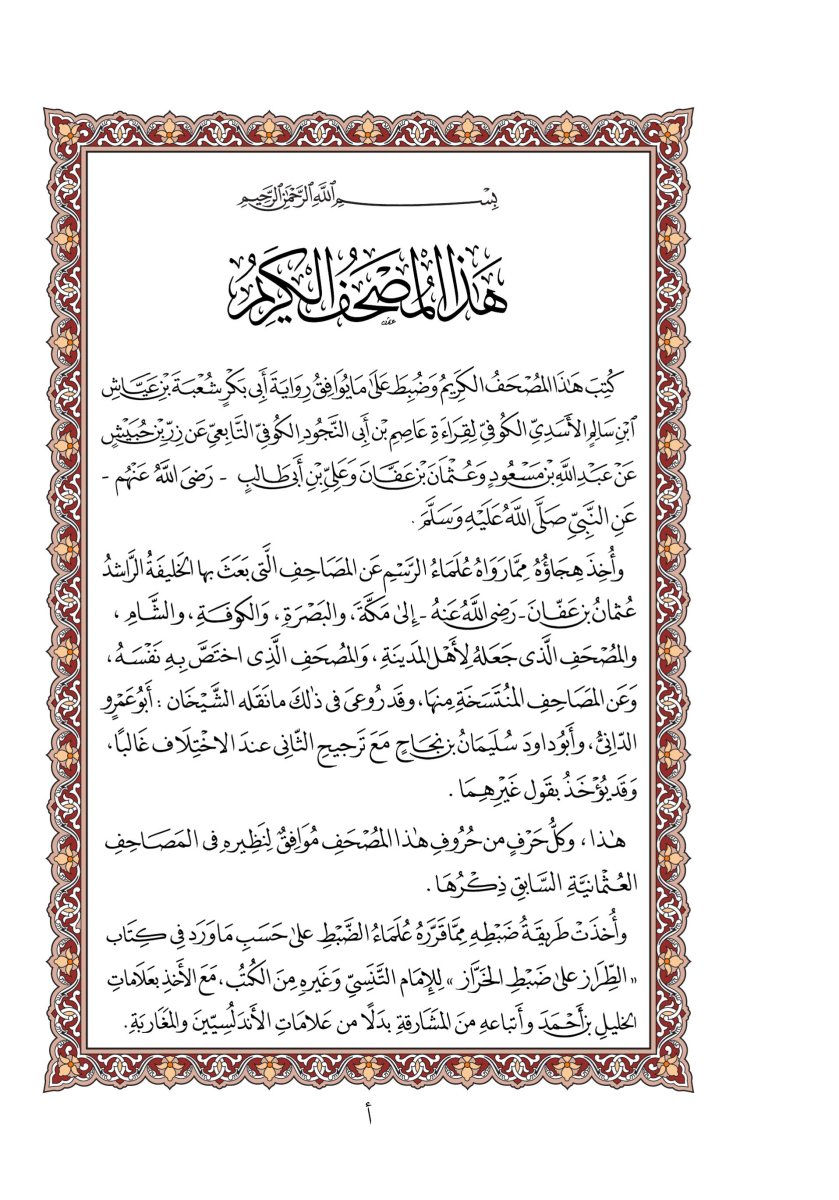 بِسْمِ ٱللَّهِ ٱلرَّحْمَٰنِ ٱلرَّحِيمِ
هَٰذَا المُصْحَفُ الكَرِيمُ
كُتِبَ هَٰذَا المُصْحَفُ الكَرِيمُ وَضُبِطَ عَلَىٰ مَا يُوَافِقُ رِوَايَةَ أَبِى بَكْرٍ شُعْبَةَ بْنِ عَيَّاشِ
ٱبْنِ سَالِمٍ الأَسَدِىِّ الكُوفِىِّ لِقِرَاءَةِ عَاصِمِ بْنِ أَبِى النَّجُودِ الكُوفِىِّ التَّابِعِىِّ عَن زِرِّ بْنِ حُبَيْشٍ
عَنْ عَبْدِ اللَّهِ بْنِ مَسْعُودٍ وَعُثْمَانَ بْنِ عَفَّانَ وَعَلِىِّ بْنِ أَبِى طَالِبٍ - رَضِىَ اللَّهُ عَنْهُم -
عَنِ النَّبِىِّ صَلَّى اللَّهُ عَلَيْهِ وَسَلَّمَ .
وأُخِذَ هِجَاؤُهُ مِمَّا رَوَاهُ عُلَمَاءُ الرَّسْمِ عَنِ المَصَاحِفِ الَّتِى بَعَثَ بِهَا الخَلِيفَةُ الرَّاشِدُ
عُثمانُ بْنُ عَفَّانَ - رَضِىَ اللَّهُ عَنهُ - إِلىٰ مَكَّةَ، والبَصْرَةِ، وَالكوفَةِ، والشَّامِ ،
والمُصْحَفِ الَّذى جَعَلَهُ لِأَهْلِ المَدينَةِ، وَالمُصحَفِ الَّذِى اختَصَّ بِهِ نَفْسَهُ ،
وَعَنِ المَصَاحِفِ المُنْتَسَخَةِ مِنهَا، وَقَد رُوعِىَ فى ذٰلكَ مانَقَله الشَّيْخَان : أَبُو عَمْرٍو
الدّانِىُّ، وأَبُو داودَ سُلَيمَانُ بْنُ نَجَاحٍ مَعَ تَرجيحِ الثَّانِى عندَ الاخْتِلَاف غَالبًا،
وَقَد يُؤْخَذُ بِقَول غَيْرِهِمَا .
هٰذا ، وكلُّ حَرْفٍ من حُرُوفِ هٰذا المُصْحَفِ مُوَافِقٌ لِنَظِيرِهِ فى المَصَاحِفِ
العُثْمَانِيَّةِ السَّابِقِ ذِكْرُهَا .
وأُخِذَتْ طَرِيقَةُ ضَبْطِهِ مِمَّا قَرَّرَهُ عُلَمَاءُ الضَّبْطِ علىٰ حَسَبِ مَا وَرَدَ فى كِتَاب
«الطِّرَازِ علىٰ ضَبْطِ الخَرَّازِ» لِلإمَام التَّنَسِىِّ وَغَيرِهِ مِنَ الكُتُبِ، مَعَ الأَخذِ بعَلَاماتِ
الخليلِ بْنِ أَحْمَدَ وأتباعهِ منَ المَشَارقةِ بدَلًا من عَلَاماتِ الأَندَلُسِيّينَ والمغَاربَةِ.
أ